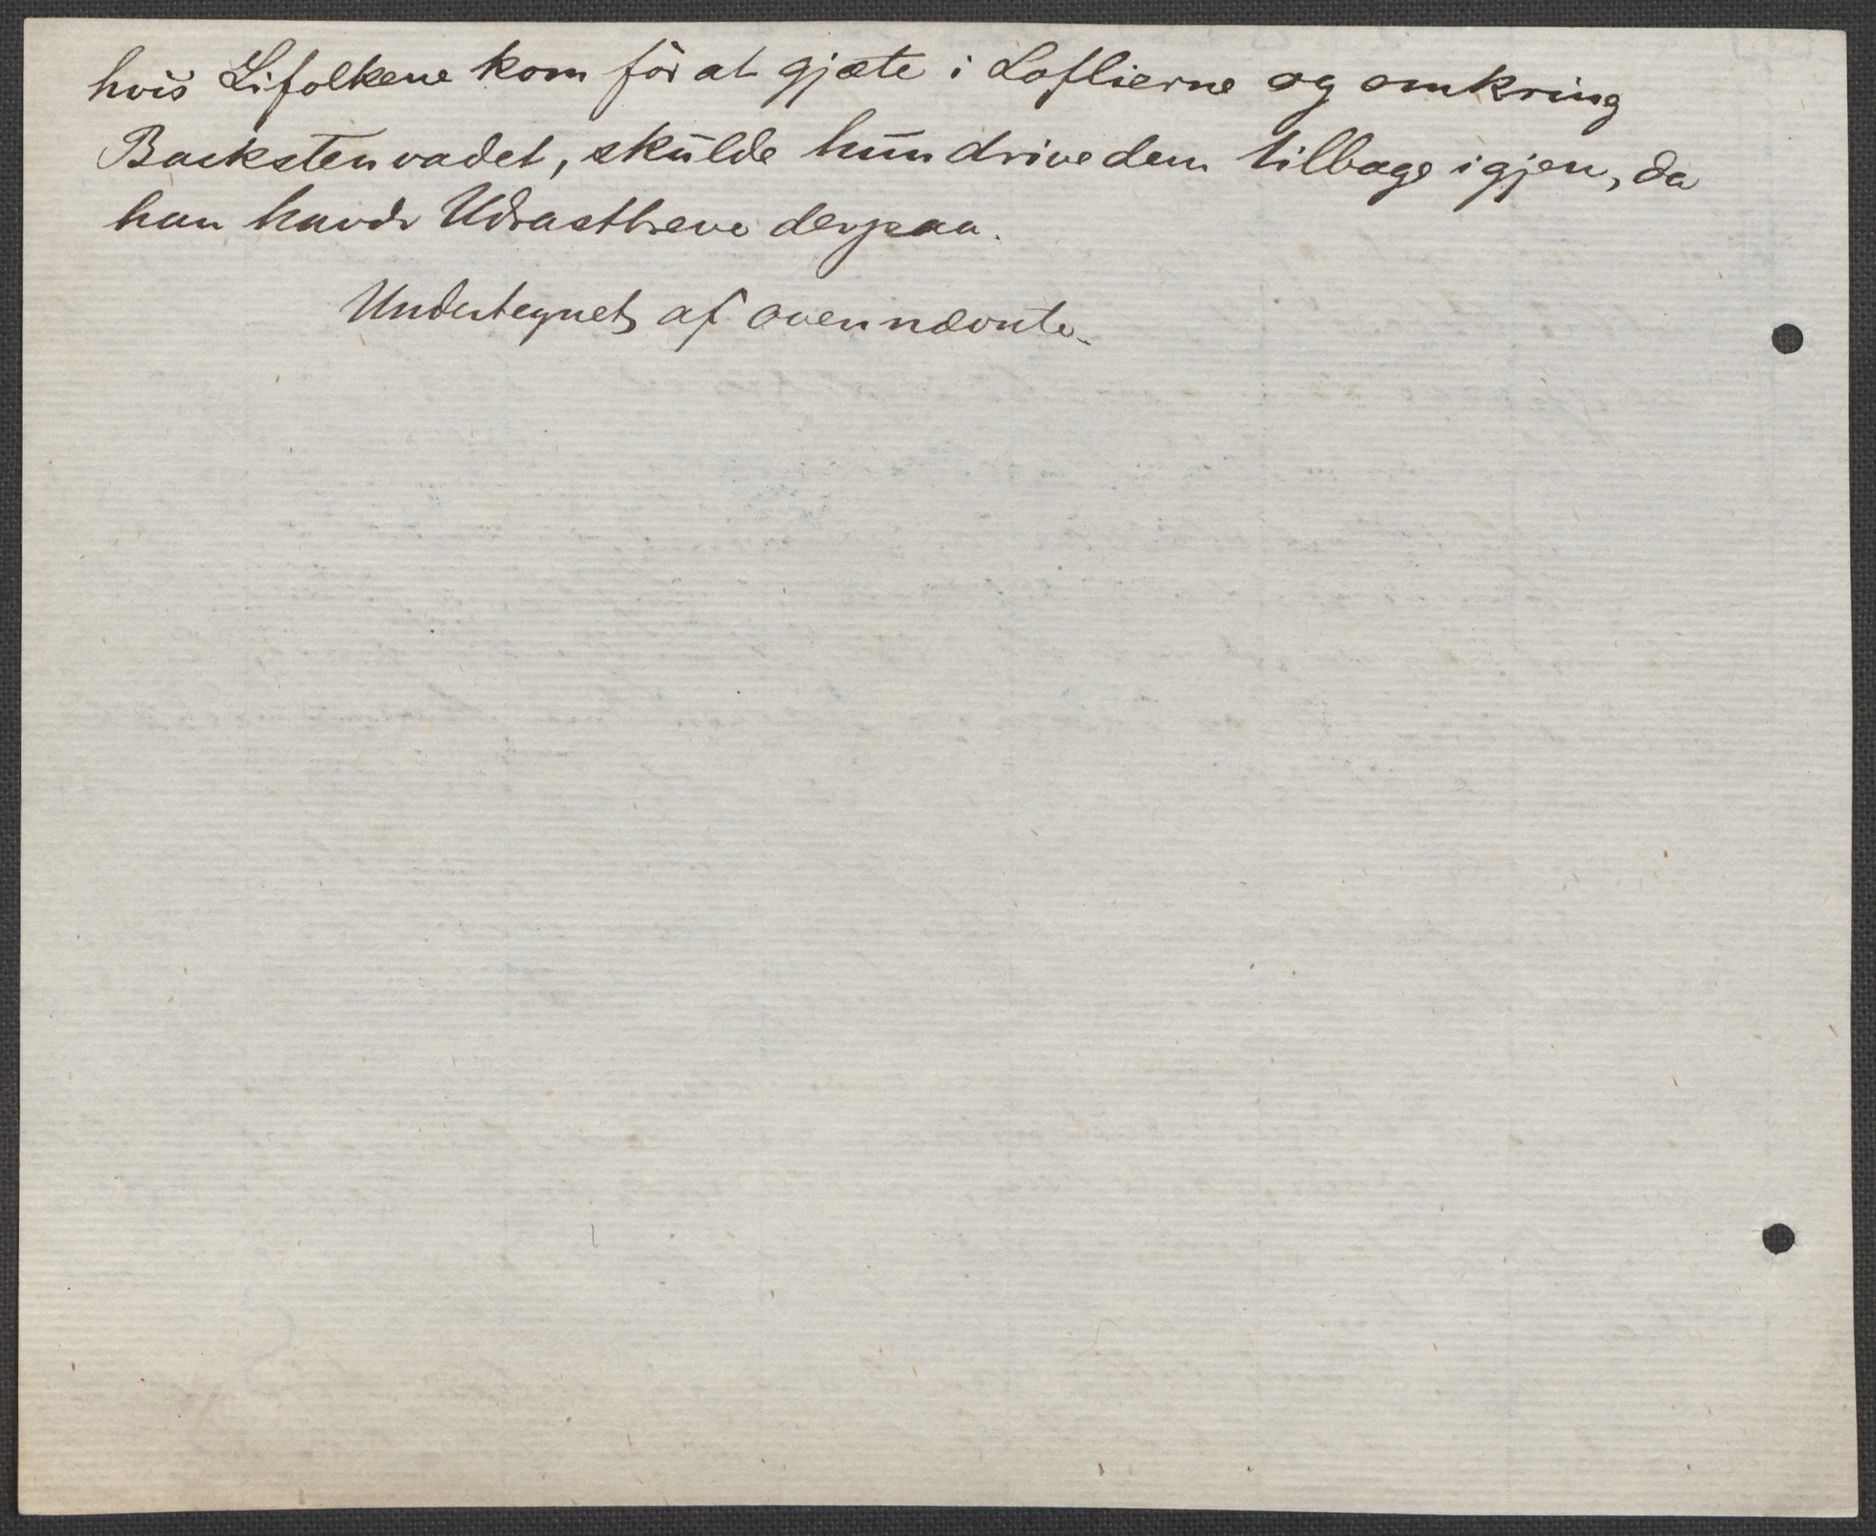 hvis Lifolkene kom for at gjæte i Loflierne og omkring
Backstenvadet, skulde hun drive dem tilbage igjen, da
han havde Udrastbreve derpaa.
Undertegnet af ovennævnte.